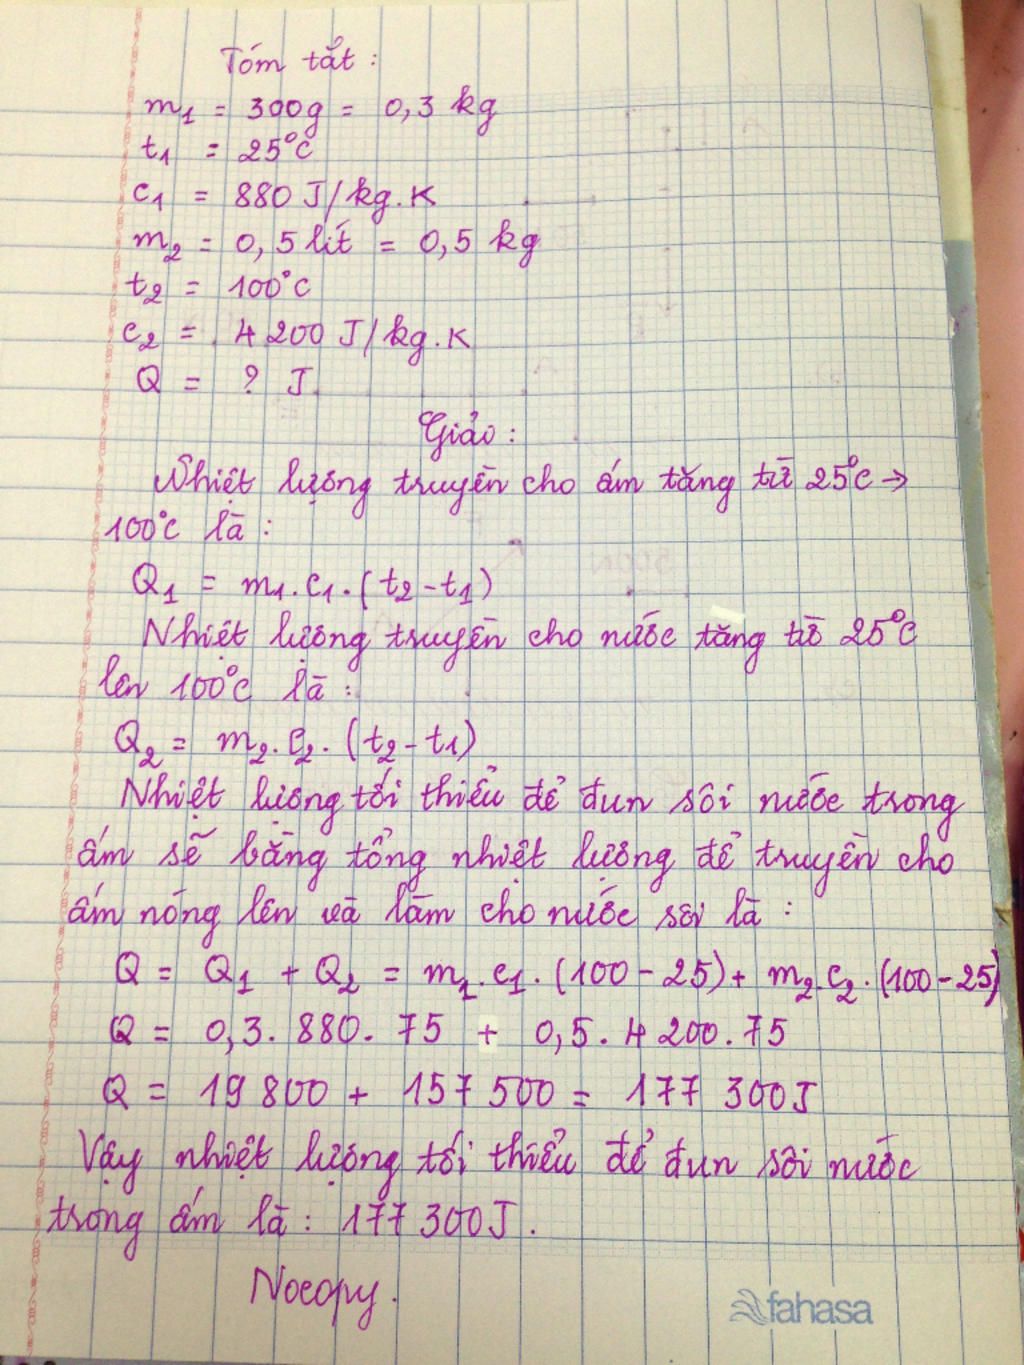 Tóm tắt :
m₁ = 300g = 0,3 kg
t₁ = 25°C
c₁ = 880 J/kg.K
m₂ = 0,5 lít = 0,5 kg
t₂ = 100°C
c₂ = 4 200 J/kg.K
Q = ? J
Giải :
Nhiệt lượng truyền cho ấm tăng từ 25°C →
100°C là :
Q₁ = m₁.c₁.(t₂-t₁)
Nhiệt lượng truyền cho nước tăng từ 25°C
lên 100°C là :
Q₂ = m₂.c₂.(t₂-t₁)
Nhiệt lượng tối thiểu để đun sôi nước trong
ấm sẽ bằng tổng nhiệt lượng để truyền cho
ấm nóng lên và làm cho nước sôi là :
Q = Q₁ + Q₂ = m₁.c₁.(100-25) + m₂.c₂.(100-25)
Q = 0,3.880.75 + 0,5.4 200.75
Q = 19 800 + 157 500 = 177 300J
Vậy nhiệt lượng tối thiểu để đun sôi nước
trong ấm là : 177 300J.
Nocopy.
fahasa